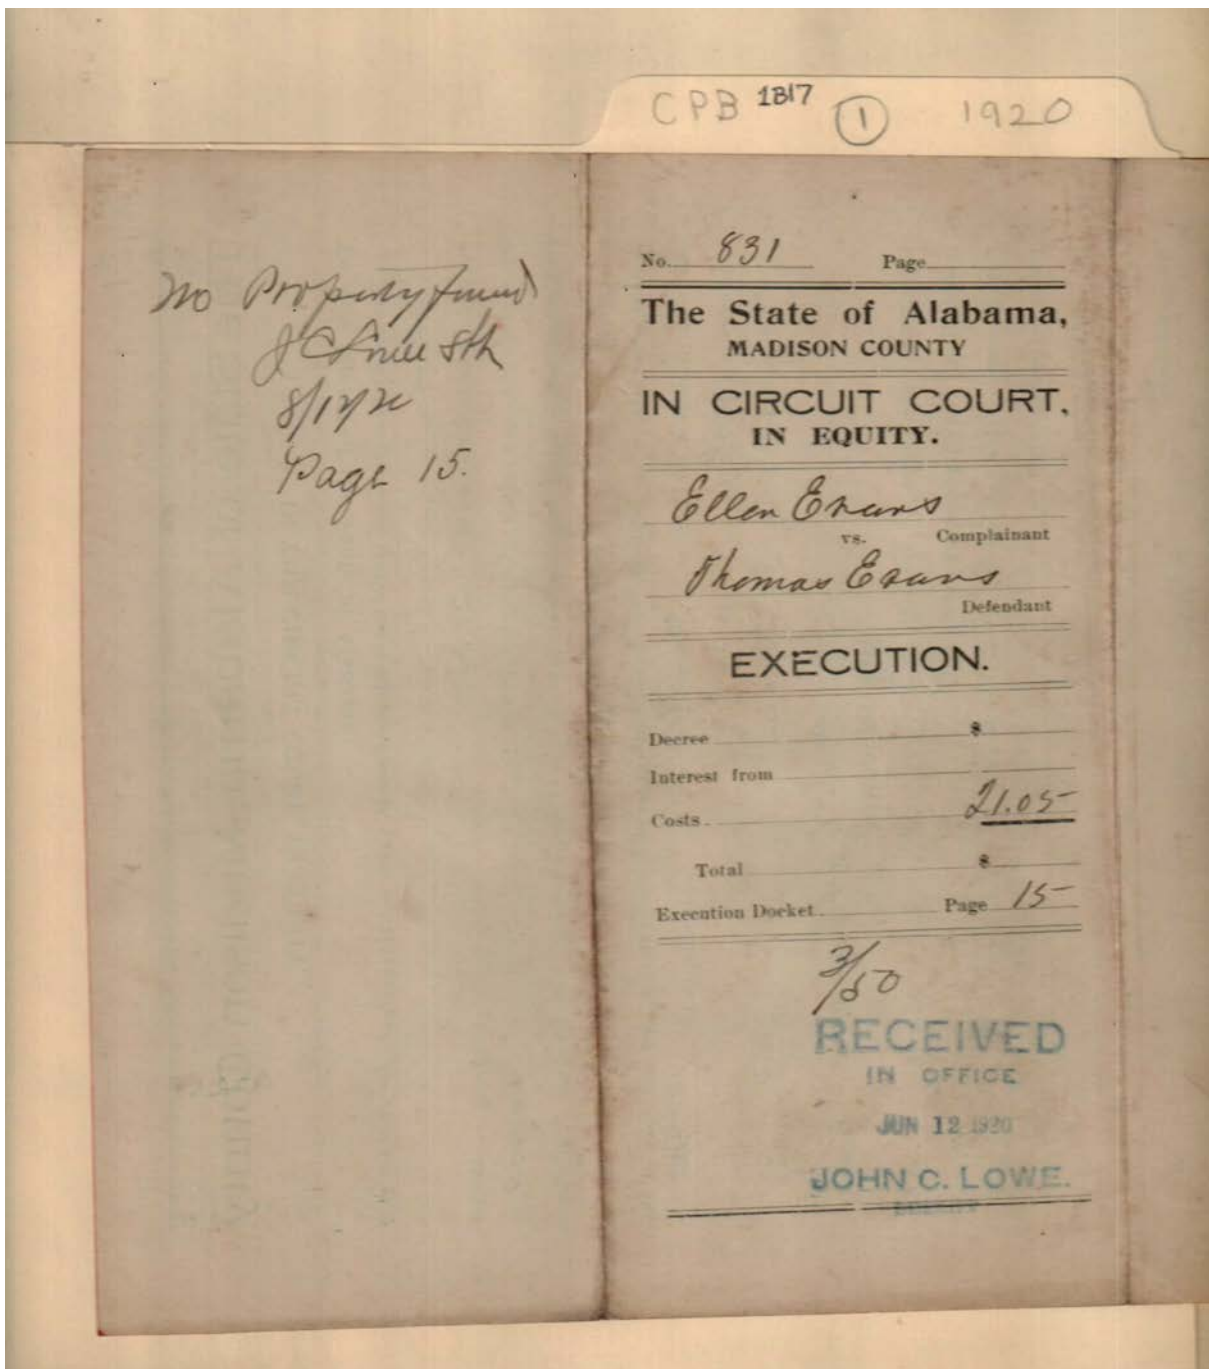 CPB 1817 1 1920
No Property found
J C Lowe Sth
8/12/20
Page 15.
No. 831 Page
The State of Alabama,
MADISON COUNTY
IN CIRCUIT COURT,
IN EQUITY.
Ellen Evans
vs. Complainant
Thomas Evans
Defendant
EXECUTION.
Decree $
Interest from
Costs 21.05
Total $
Execution Docket Page 15
3/50
RECEIVED
IN OFFICE
JUN 12 1920
JOHN C. LOWE.